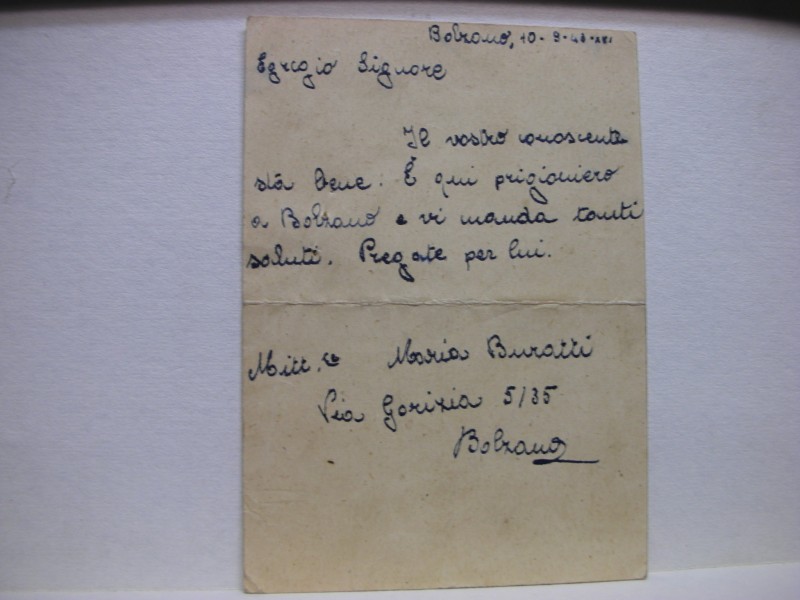 Bolzano, 10-9-43-XXI
Egregio Signore
Il vostro conoscente
stà bene. È qui prigioniero
a Bolzano e vi manda tanti
saluti. Pregate per lui.
Mitt. Maria Buratti
Via Gorizia 5/35
Bolzano